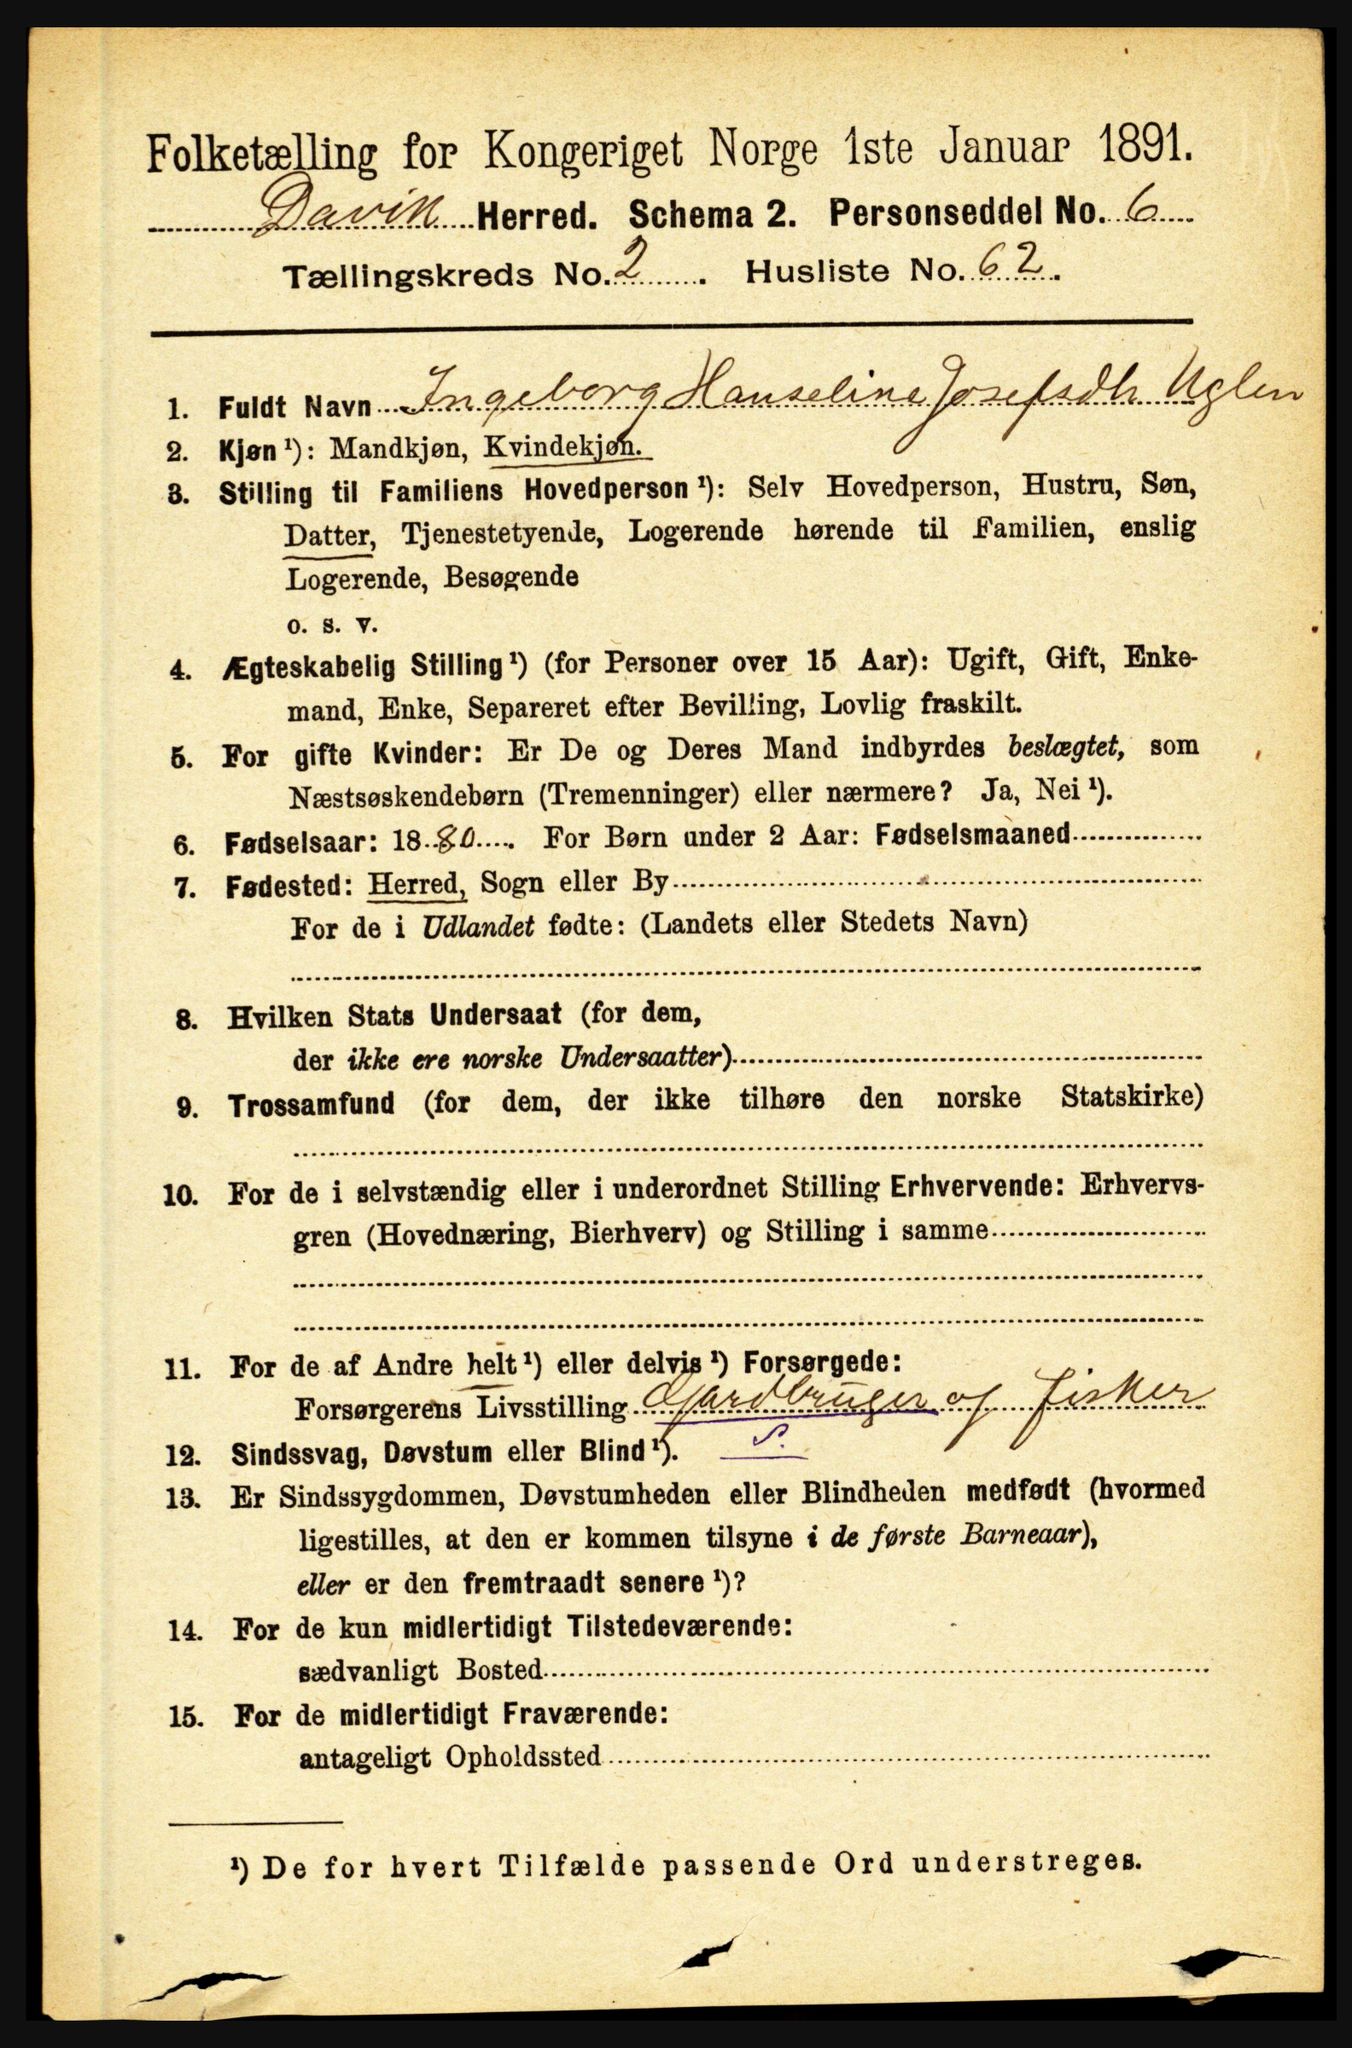 Folketælling for Kongeriget Norge 1ste Januar 1891.
Davik Herred. Schema 2. Personseddel No. 6
Tællingskreds No. 2. Husliste No. 62.
1. Fuldt Navn Ingeborg Hanseline Josefsdtr Uglen
2. Kjøn¹): Mandkjøn, Kvindekjøn.
3. Stilling til Familiens Hovedperson¹): Selv Hovedperson, Hustru, Søn,
Datter, Tjenestetyende, Logerende hørende til Familien, enslig
Logerende, Besøgende
o. s. v.
4. Ægteskabelig Stilling¹) (for Personer over 15 Aar): Ugift, Gift, Enke-
mand, Enke, Separeret efter Bevilling, Lovlig fraskilt.
5. For gifte Kvinder: Er De og Deres Mand indbyrdes beslægtet, som
Næstsøskendebørn (Tremenninger) eller nærmere? Ja, Nei¹).
6. Fødselsaar: 1880. For Børn under 2 Aar: Fødselsmaaned
7. Fødested: Herred, Sogn eller By
For de i Udlandet fødte: (Landets eller Stedets Navn)
8. Hvilken Stats Undersaat (for dem,
der ikke ere norske Undersaatter)
9. Trossamfund (for dem, der ikke tilhøre den norske Statskirke)
10. For de i selvstændig eller i underordnet Stilling Erhvervende: Erhvervs-
gren (Hovednæring, Bierhverv) og Stilling i samme
11. For de af Andre helt¹) eller delvis¹) Forsørgede:
Forsørgerens Livsstilling Gardbruger og fisker
12. Sindssvag, Døvstum eller Blind¹). S.
13. Er Sindssygdommen, Døvstumheden eller Blindheden medfødt (hvormed
ligestilles, at den er kommen tilsyne i de første Barneaar),
eller er den fremtraadt senere¹)?
14. For de kun midlertidigt Tilstedeværende:
sædvanligt Bosted
15. For de midlertidigt Fraværende:
antageligt Opholdssted
¹) De for hvert Tilfælde passende Ord understreges.